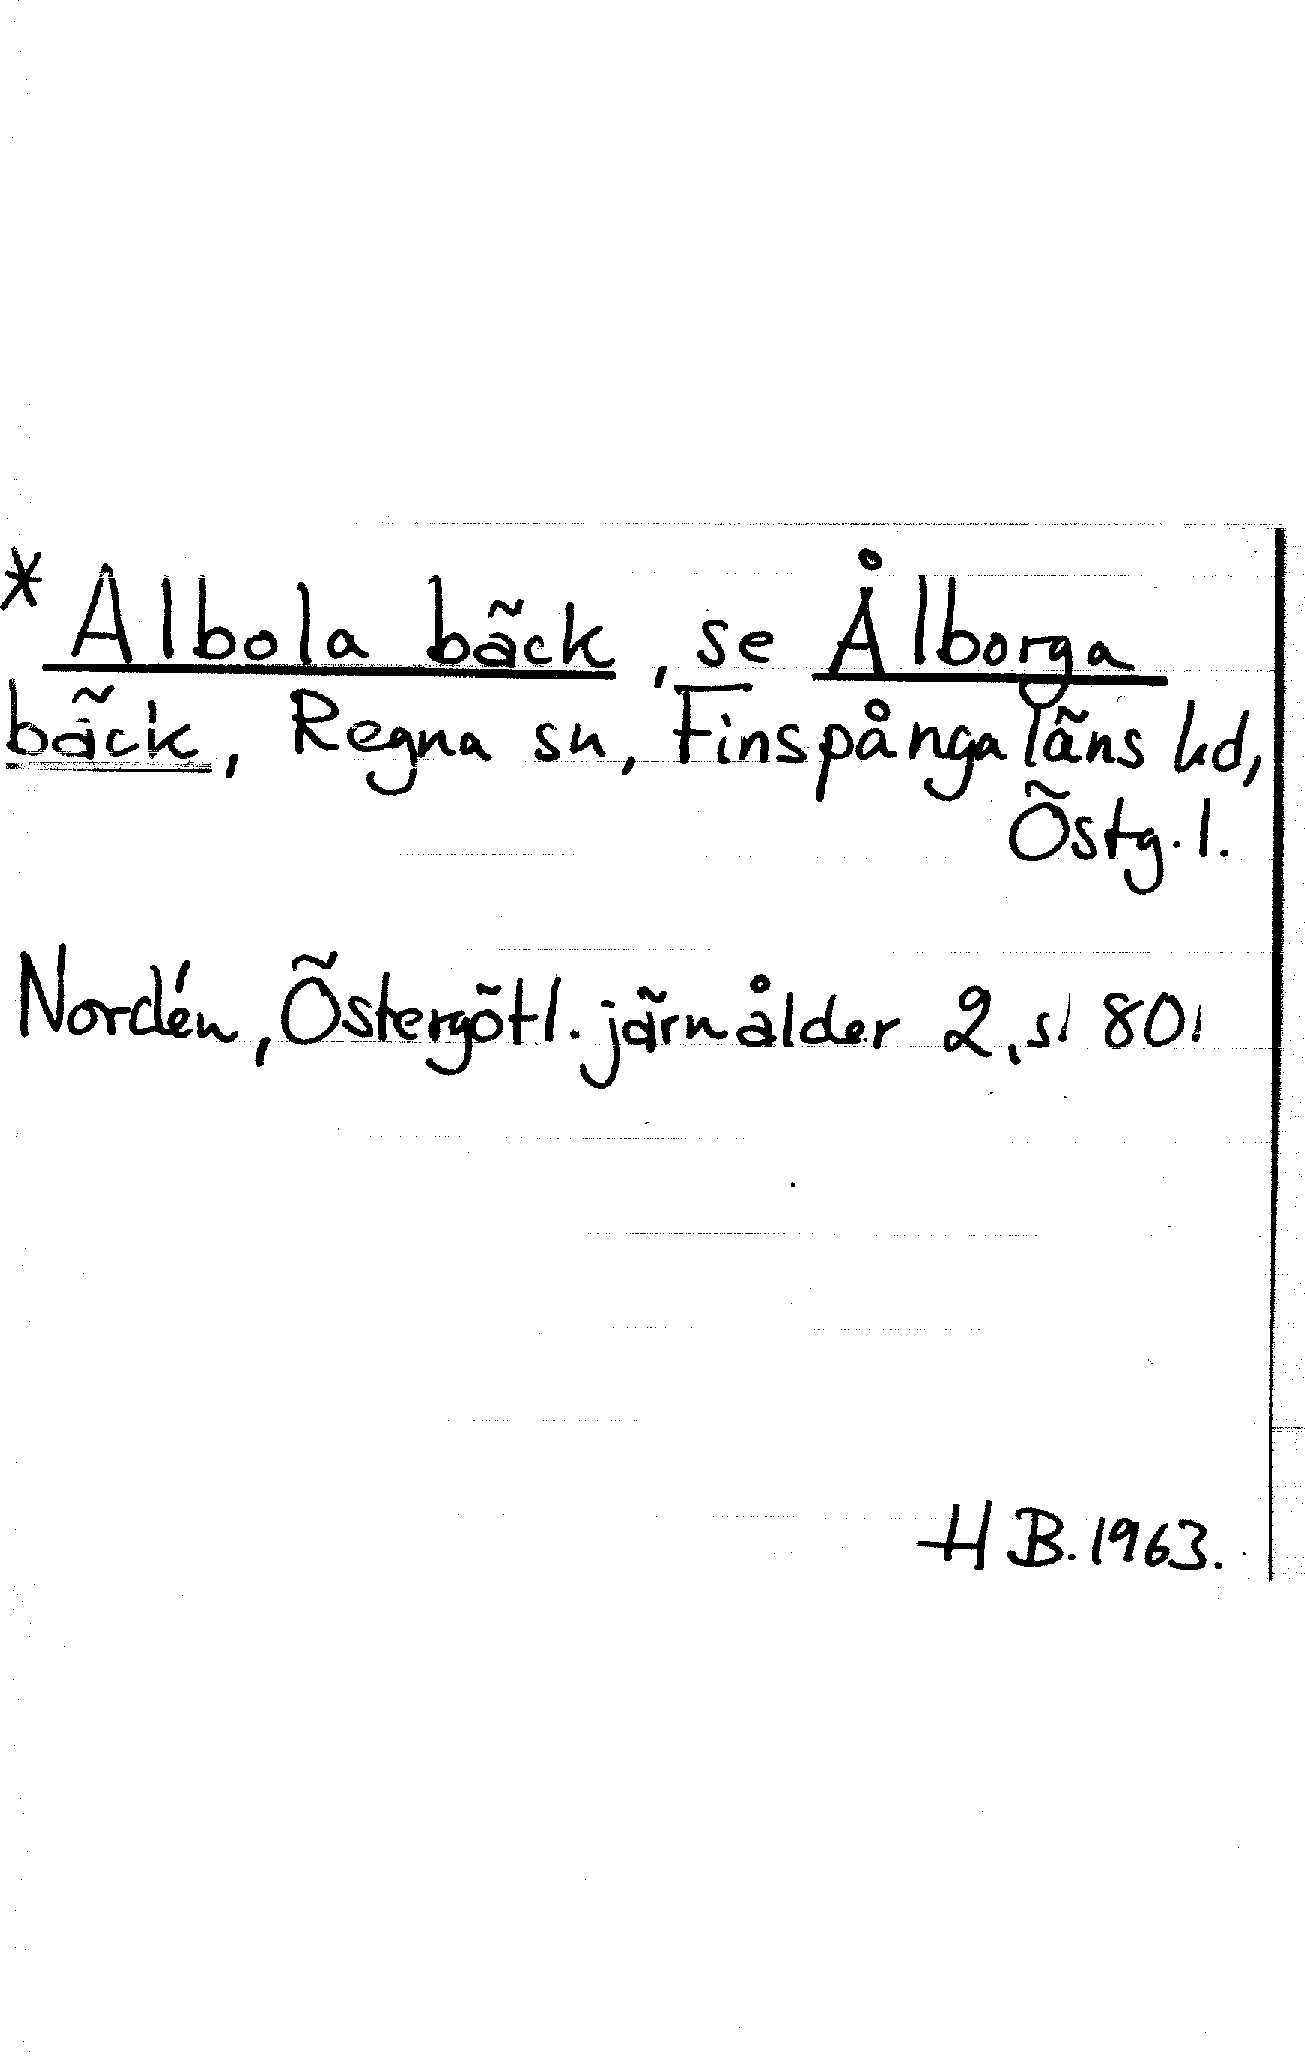 * Albola bäck, se Ålborga
bäck, Regna sn, Finspånga läns hd,
Östg. l.
Nordén, Östergötl. järnålder 2, s. 80.
H B. 1963.